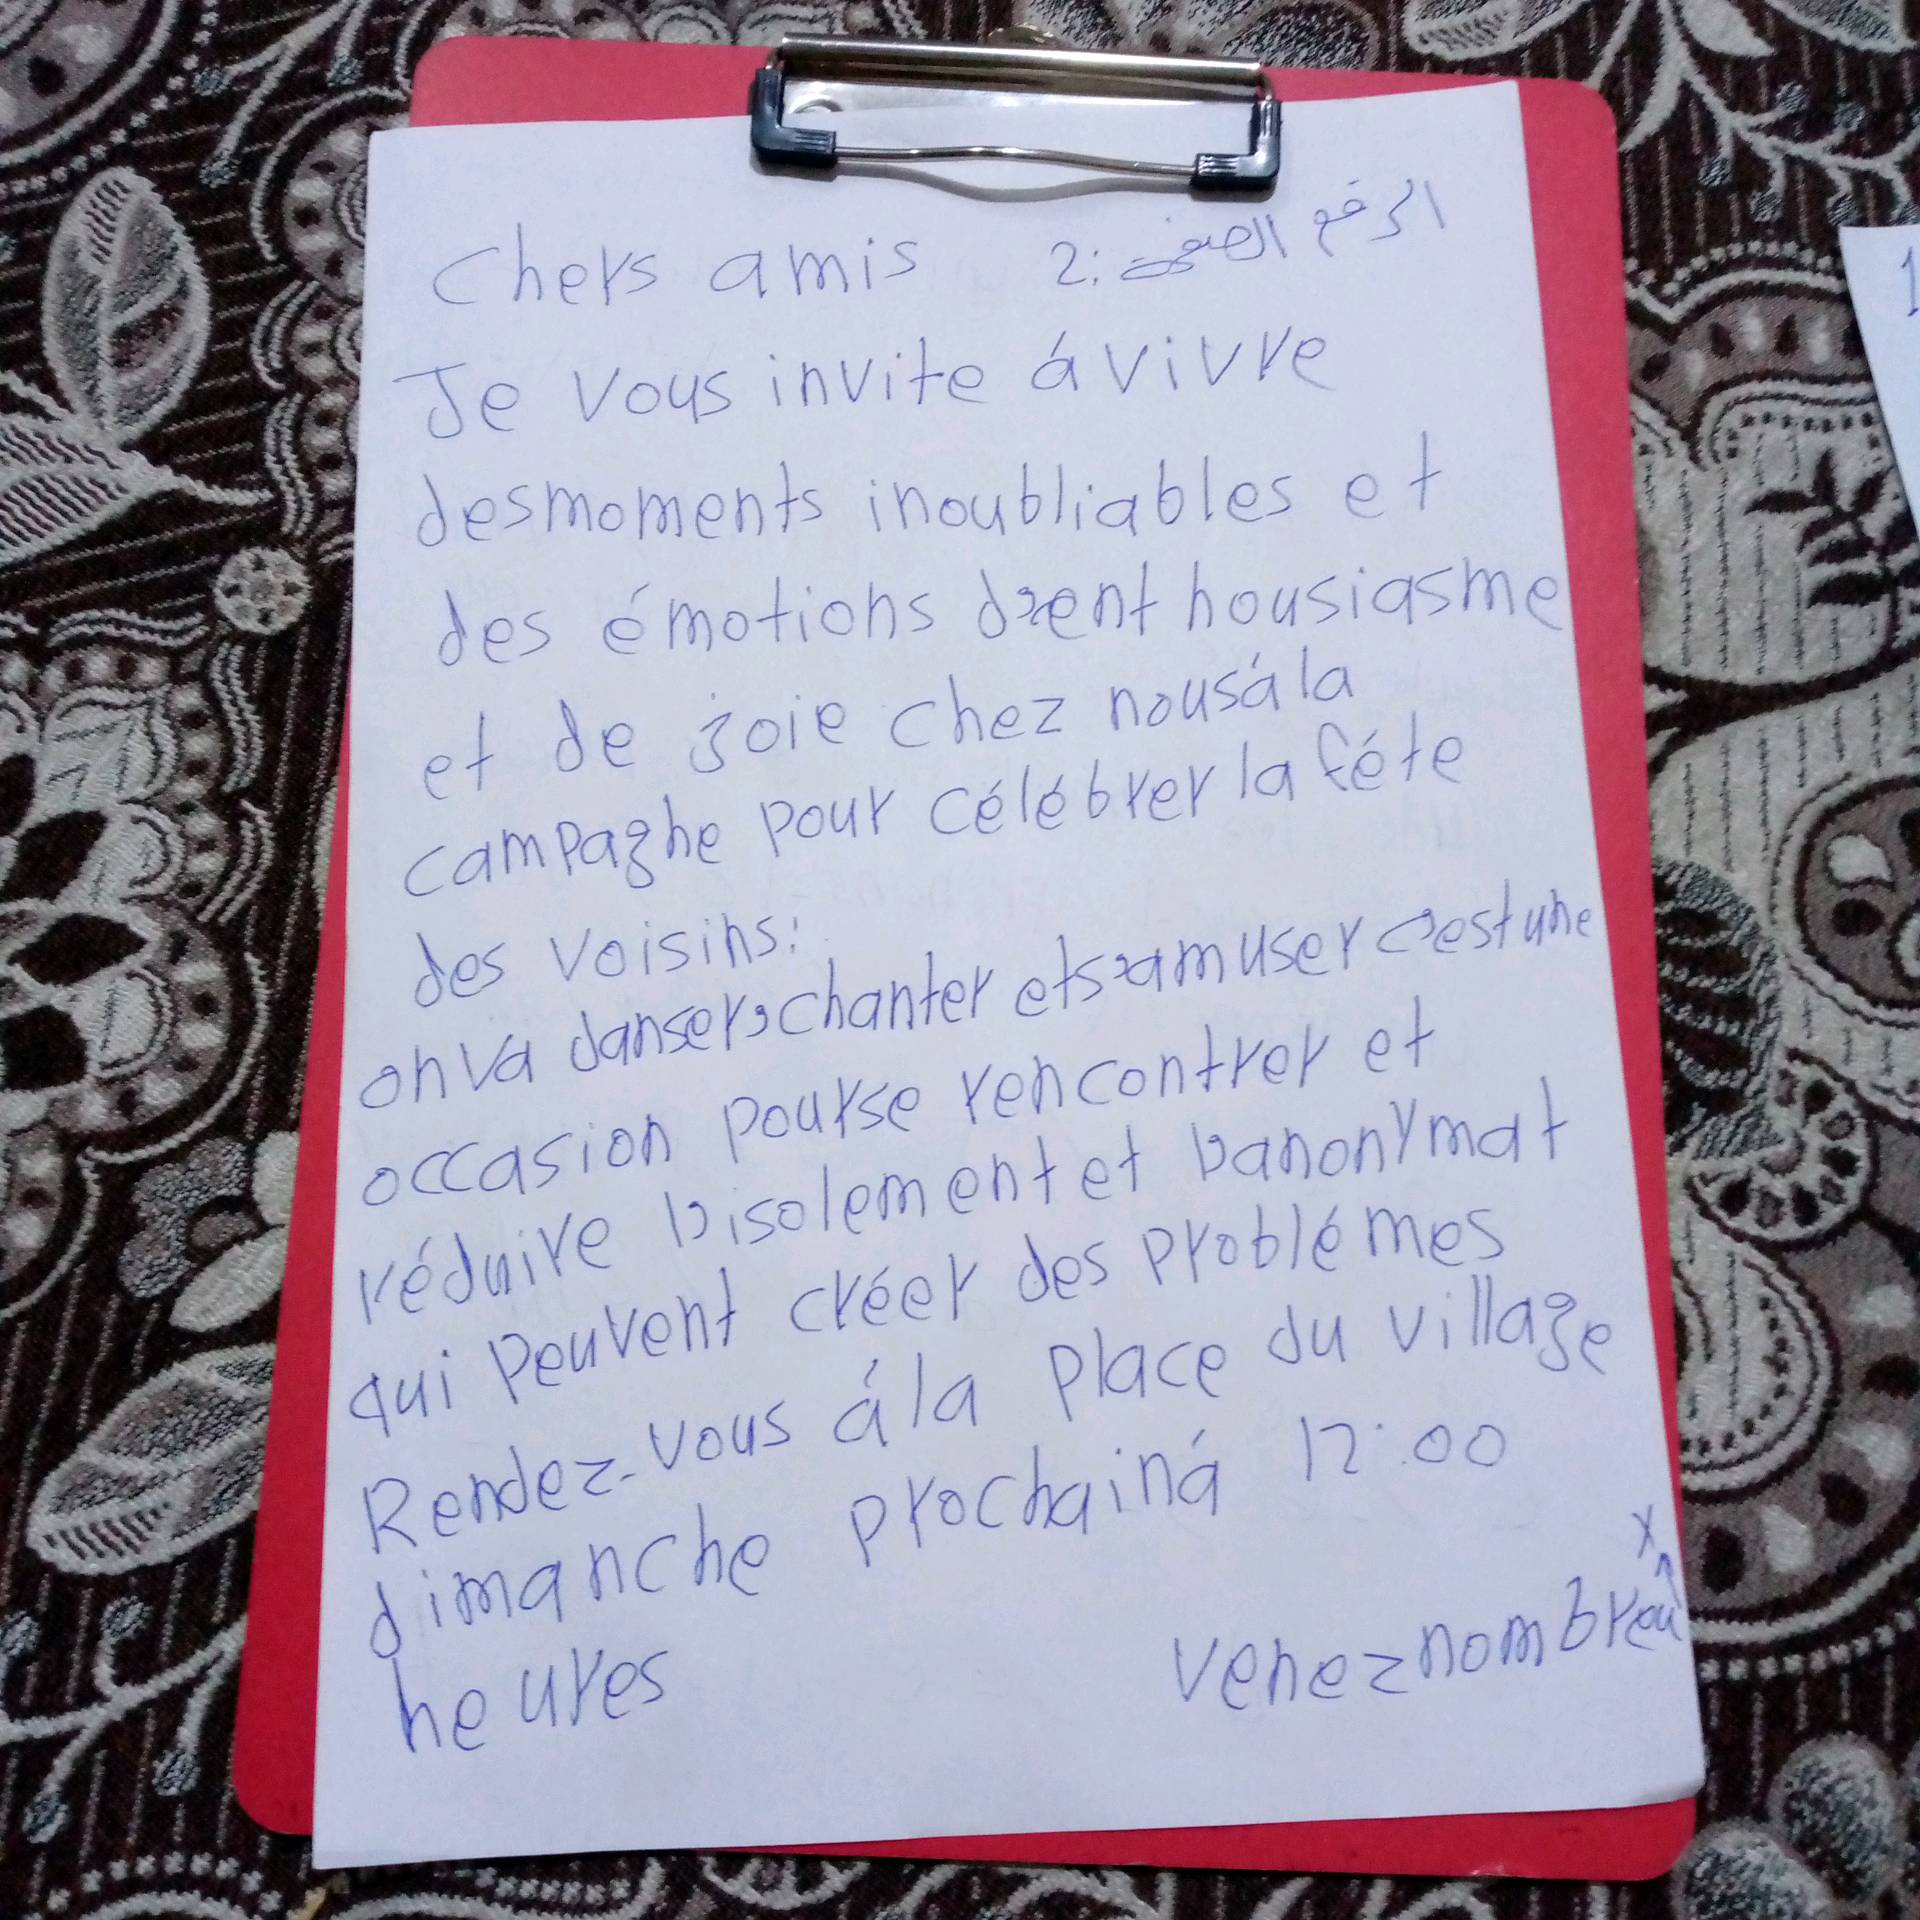 Chers amis 2: الرقم الصفحة
Je vous invite á vivre
des moments inoubliables et
des émotions d'enthousiasme
et de joie chez nous á la
campaghe pour célébrer la féte
des voisins:
on va danser, chanter et s'amuser c'est une
occasion pour se rencontrer et
réduire l'isolement et l'anonymat
qui peuvent créer des problémes
Rendez-vous á la place du village
dimanche prochain á 12:00
heures
venez nombreux
1